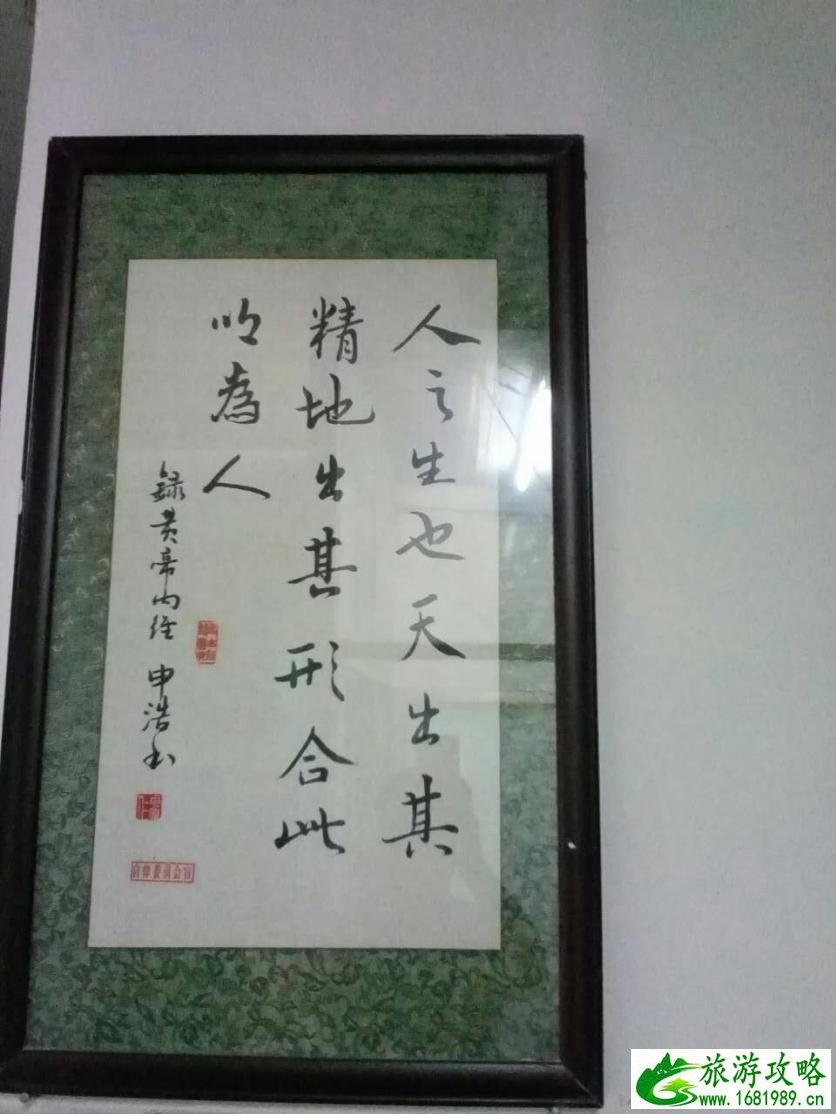 人之生也天出其
精地出其形合此
以為人
錄黄帝内经 申浩书
旅游攻略
www.1681989.cn